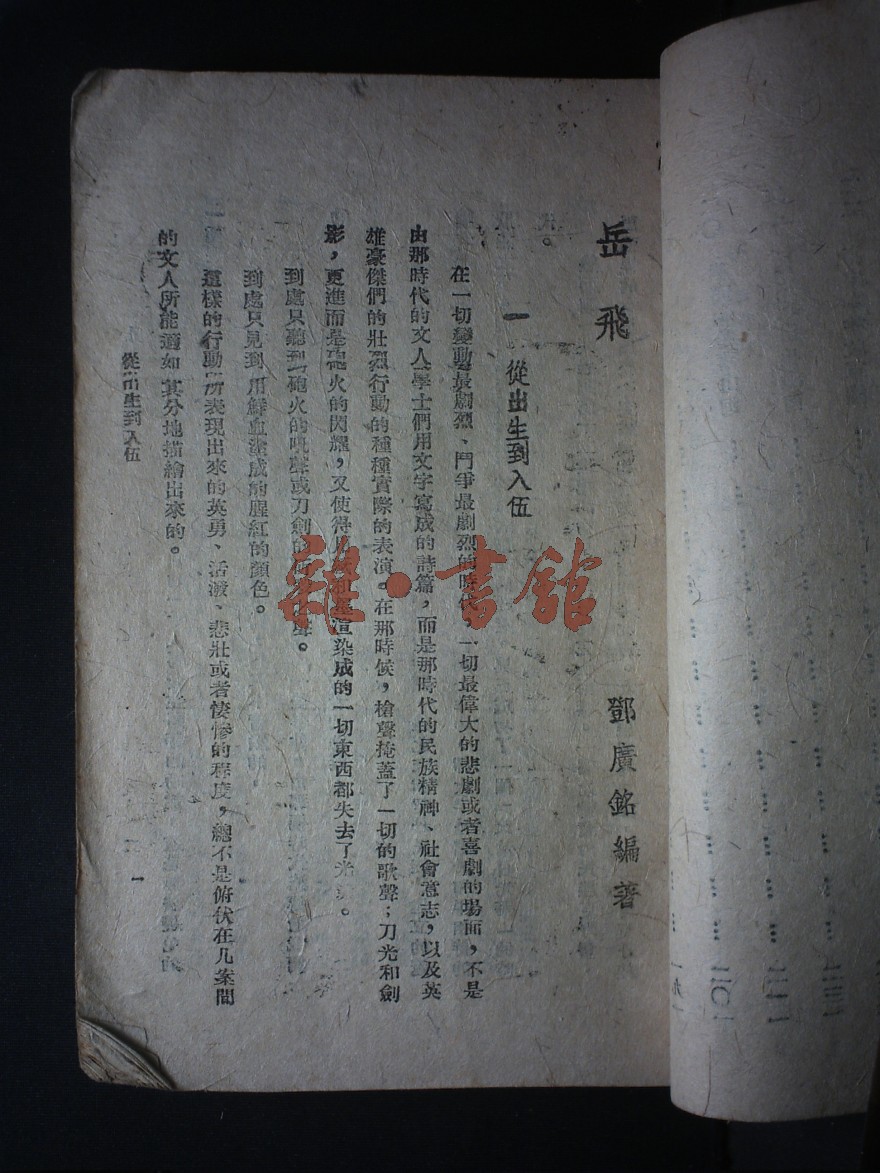 岳飛
鄧廣銘編著
一 從出生到入伍
在一切變動最劇烈、鬥爭最劇烈的時代，一切最偉大的悲劇或者喜劇的場面，不是
由那時代的文人學士們用文字寫成的詩篇，而是那時代的民族精神、社會意志，以及英
雄豪傑們的壯烈行動的種種實際的表演。在那時候，槍聲掩蓋了一切的歌聲；刀光和劍
影，更進而是砲火的閃耀，又使得用渲染成的一切東西都失去了光。
到處只聽到砲火的吼聲或刀劍的聲。
到處只見到用鮮血塗成的腥紅的顏色。
這樣的行動所表現出來的英勇、活潑、悲壯或者悽慘的程度，總不是俯伏在几案間
的文人所能適如其分地描繪出來的。
從出生到入伍
一
雜·書館